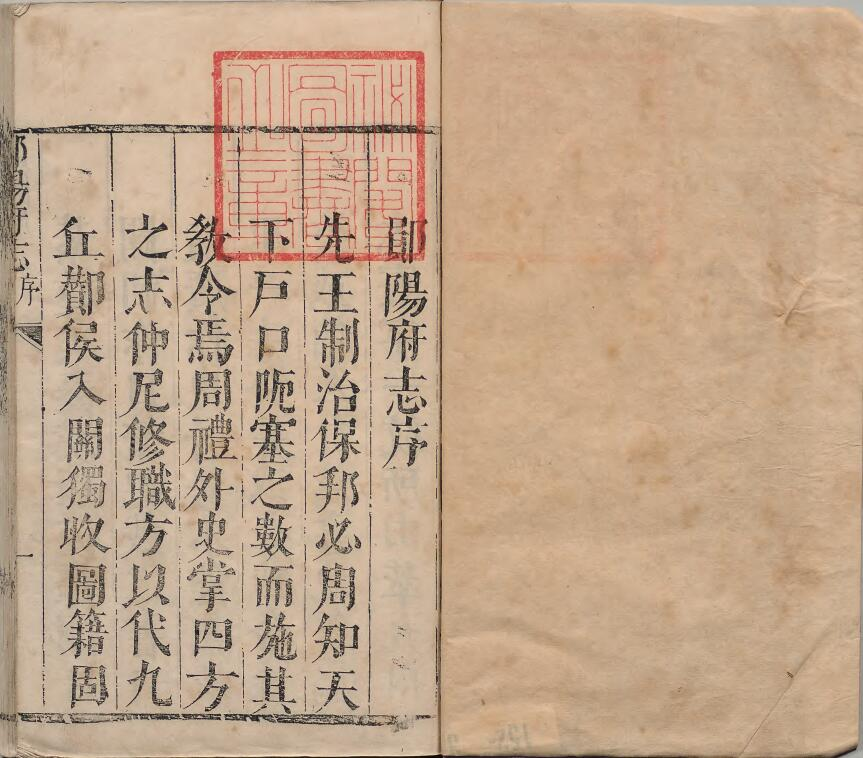 鄖陽府志序
先王制治保邦必周知天
下戶口阨塞之數而施其
敎令焉周禮外史掌四方
之志仲尼修職方以代九
丘酇侯入關獨收圖籍固
鄖陽府志序
一